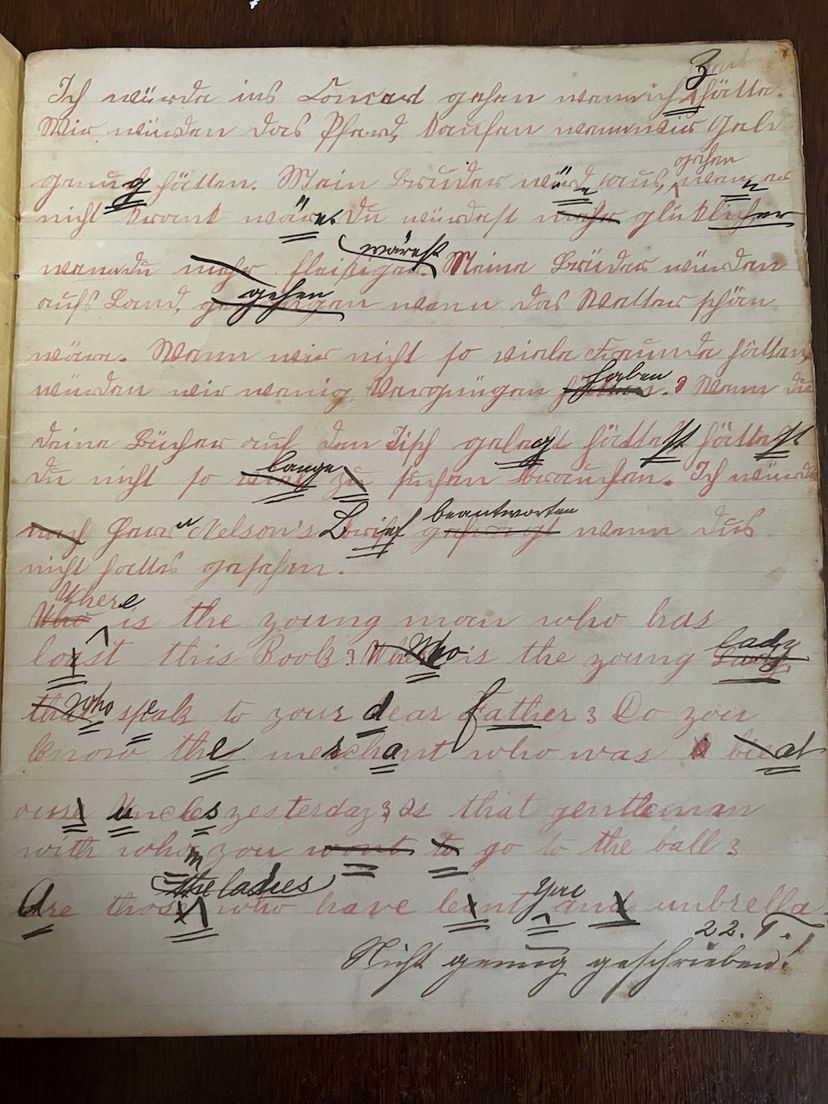 Zeit
Ich würde ins Concert gehen wenn ich Z hätte.
Wir würden das Pferd, kaufen wenn wir Geld
gehen
genug hätten. Mein Bruder würde aus, wenn er
nicht krank wäre. Du würdest mehr glücklicher
wärest
wenn du mehr fleißiger. Meine Brüder würden
gehen
aufs Land, wenn das Wetter schön
wäre. Wenn wir nicht so viele Freunde hätten,
haben
würden wir wenig Vergnügen hätten. Wenn du
deine Bücher auf den Tisch gelegt hättest hättest
lange
du nicht so viel zu suchen brauchen. Ich würde
beantworten
nach Herrn Nelson's Brief gefragt wenn du's
nicht hattes gesehen.
Where
Who is the young man who has
loast this Book? Who is the young Lady
that who speak to your dear Father? Do you
know the merchant who was at
ours uncles yesterday? Is that gentleman
with whom you want to go to the ball?
the ladies
you
Are those who have leant and unbrella.
22. T.
Nicht genug geschrieben!